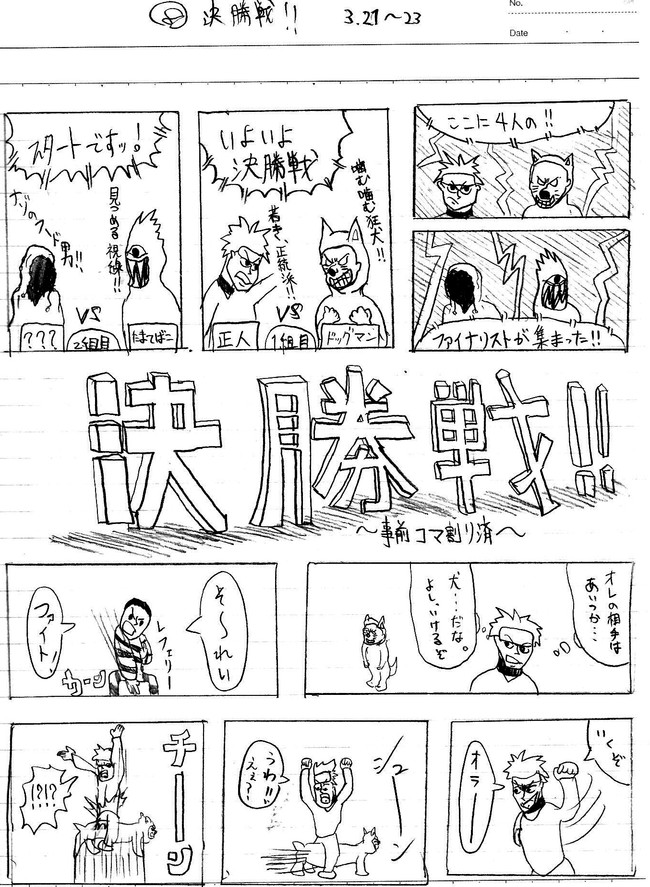 決勝戦!! 3.21～23
No.
Date
ここに4人の!!
ファイナリストが集まった!!
いよいよ
決勝戦
噛む噛む狂犬!!
若き、正統派!!
VS
正人
1組目
ドッグマン
スタートですッ!
見つめる視線!!
ナゾのフード男!!
VS
???
2組目
たまてばこ
決勝戦!!
～事前コマ割り済～
オレの相手は
あいつか…
犬…だな。
よし、いけるぞ
そ～れい
レフェリー
ファイト!
カーン
いくぞ
オラー
シューン
うわ!!
ええ?!
チーン
!?!?